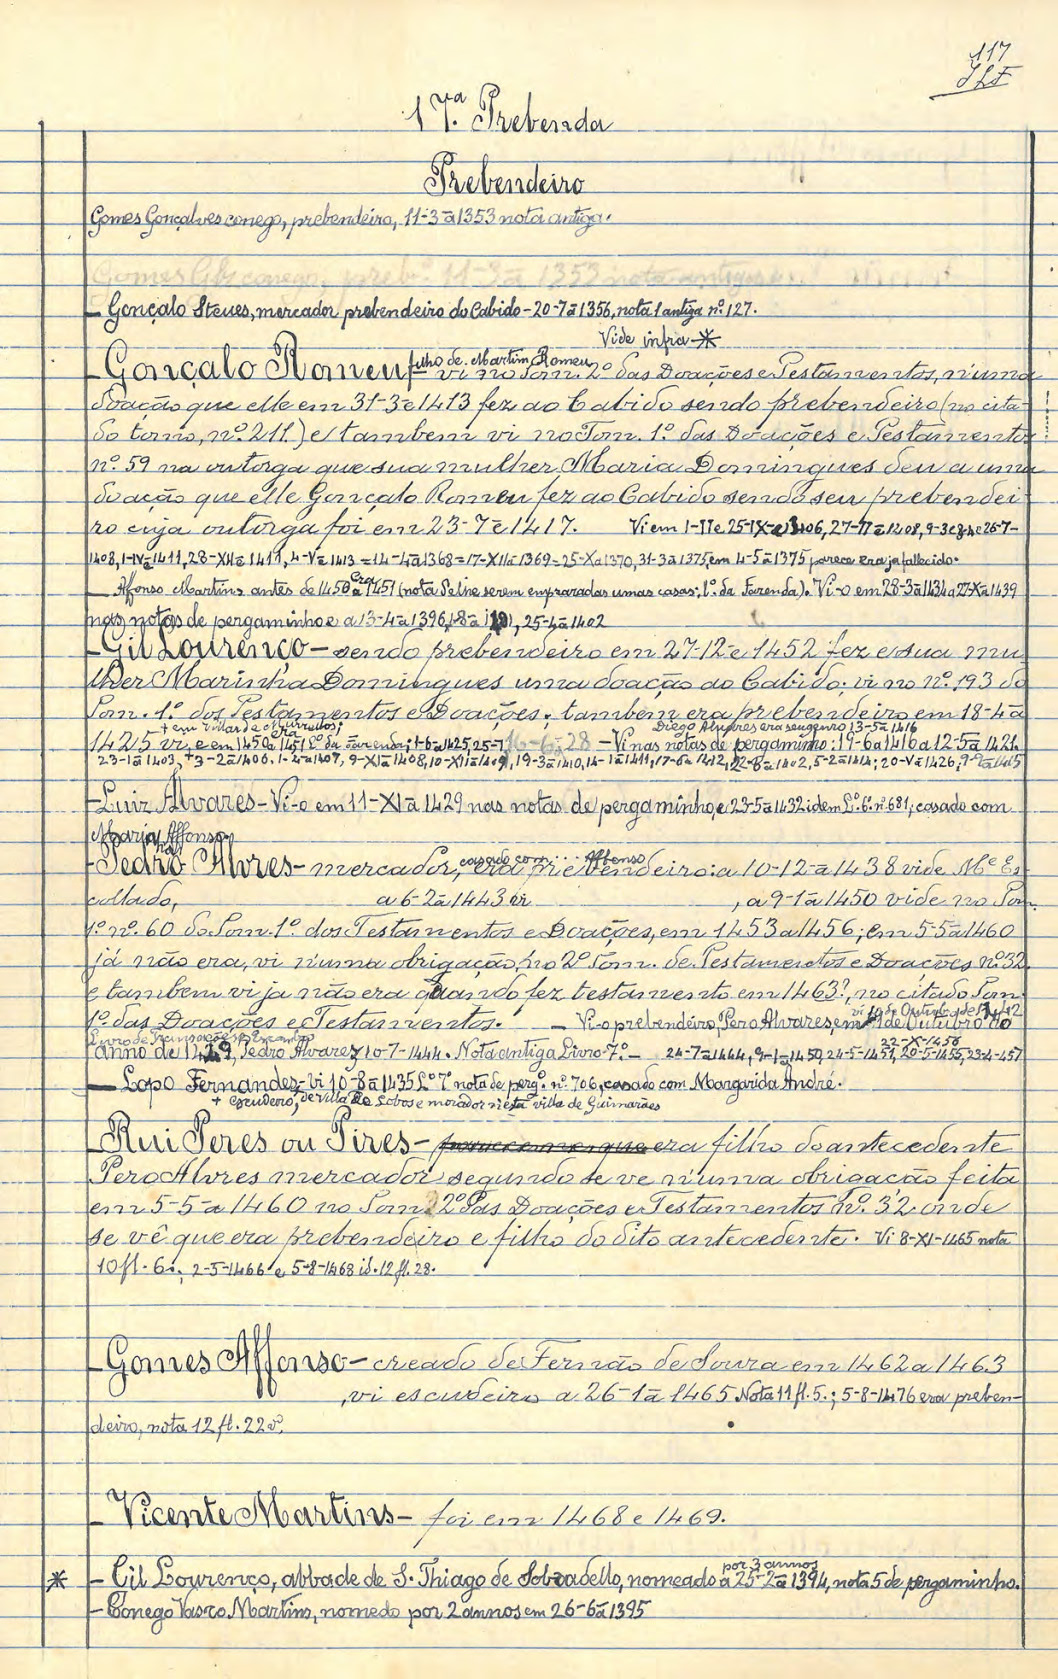 117
JLF
17.ª Prebenda
Prebendeiro
Gomes Gonçalves conego, prebendeiro, 11-3-ā1353 nota antiga.
Gomes conego, preb.º 11-3-ā 1353 nota antiga
- Gonçalo Steves, mercador prebendeiro do Cabido - 20-7-ā1356, nota 1 antiga nº.127.
Vide infra *
filho de Martim Romeu
- Gonçalo Romeu - vi no Tom. 2º das Doações e Testamentos, n'uma
doação que elle em 31-3-e1413 fez ao Cabido sendo prebendeiro (no cita-
do tomo, nº.211.) e tambem vi no Tom. 1º. das Doações e Testamentos
nº. 59 na outorga que sua mulher Maria Domingues deu a uma
doação que elle Gonçalo Romeu fez ao Cabido sendo seu prebendei-
ro cuja outorga foi em 23-7-e1417. Vi em
1408, 1-IV-ā1411, 28-XII-ā1411, 4-V-ā1413 = 14-4-ā1368 = 17-XII-ā1369 = 25-X-ā1370, 31-3-ā1375, em 4-5-ā1375 parece era ja fallecido.
- Affonso Martins antes de 1450 ā 1451 (nota serem emprazadas umas casas; L.º da Fazenda). Vi-o em 28-3-ā1434 a 27-X-ā1439
nas notas de pergaminho e a 13-4-ā1396, 25-4-ā1402
- Gil Lourenço - sendo prebendeiro em 27-12-e1452 fez e sua mu
lher Marinha Domingues uma doação ao Cabido; vi no nº.193 do
Tom. 1º. dos Testamentos e Doações; tambem era prebendeiro em 18-4-ā
+ em Villar de Murredos; Diego era seu genro 13-5-ā1416
1425 vi, e em 1450 ā 1451 L.º da Fazenda; 1-6-ā1425, 25-1 16-6-ā28 - Vi nas notas de pergaminho: 19-6-ā1416 a 12-5-ā 1421.
23-1-ā1403, +3-2-ā1406. 1-4-ā1407, 9-XI-ā1408, 10-XII-ā1409, 19-3-ā1410, 14-1-ā1411, 17-6-ā1412, 22-8-ā1402, 5-2-ā1414; 20-V-ā1426, 9-2-ā1415
- Luiz Alvares - Vi-o em 11-XI-ā1429 nas notas de pergaminho, e 23-5-ā1432 idem L.º6.º nº681, casado com
Maria Affonso.
casado com ... Affonso
- Pedro Alvres - mercador, era prebendeiro: a 10-12-ā1438 vide M.e Es
collado, a 6-2-ā1443 vi , a 9-1-ā1450 vide no Tom.
1º. nº. 60 do Tom. 1º. dos Testamentos e Doações, em 1453 a 1456; em 5-5-ā1460
já não era, vi n'uma obrigação, no 2º Tom. de Testamentos e Doações nº32
e tambem vi ja não era quando fez testamento em 1463?, no citado Tom.
1º. das Doações e Testamentos. - Vi-o prebendeiro, Pero Alvares em 1 de Outubro do
anno de 1429, Pedro Alvarez 10-7-1444. Nota antiga Livro 7.º - 24-7-ā1444, 9-1-ā1450, 24-5-1451, 20-5-1455, 23-4-1457
22-X-1456
- Lopo Fernandez - vi 10-8-ā1435 L.º7º nota de perg.º nº. 706, casado com Margarida André.
+ escudeiro, de Villa de Lobos e morador n'esta villa de Guimarães
- Rui Peres ou Pires - era filho do antecedente
Pero Alvres mercador segundo se ve n'uma obrigação feita
em 5-5-ā1460 no Tom. 2º das Doações e Testamentos nº.32 onde
se vê que era prebendeiro e filho do dito antecedente. Vi 8-XI-1465 nota
10 fl. 6v., 2-5-1466 e 5-8-1468 id. 12 fl. 28.
- Gomes Affonso - creado de Fernão de Souza em 1462 a 1463
, vi escudeiro a 26-1-ā1465 Nota 11 fl. 5.; 5-8-1476 era preben-
deiro, nota 12 fl. 22 v.
- Vicente Martins - foi em 1468 e 1469.
por 3 annos
* - Gil Lourenço, abbade de S. Thiago de Sobradello, nomeado a 25-2-ā1394, nota 5 de pergaminho.
- Conego Vasco Martins, nomedo por 2 annos em 26-6-ā1395